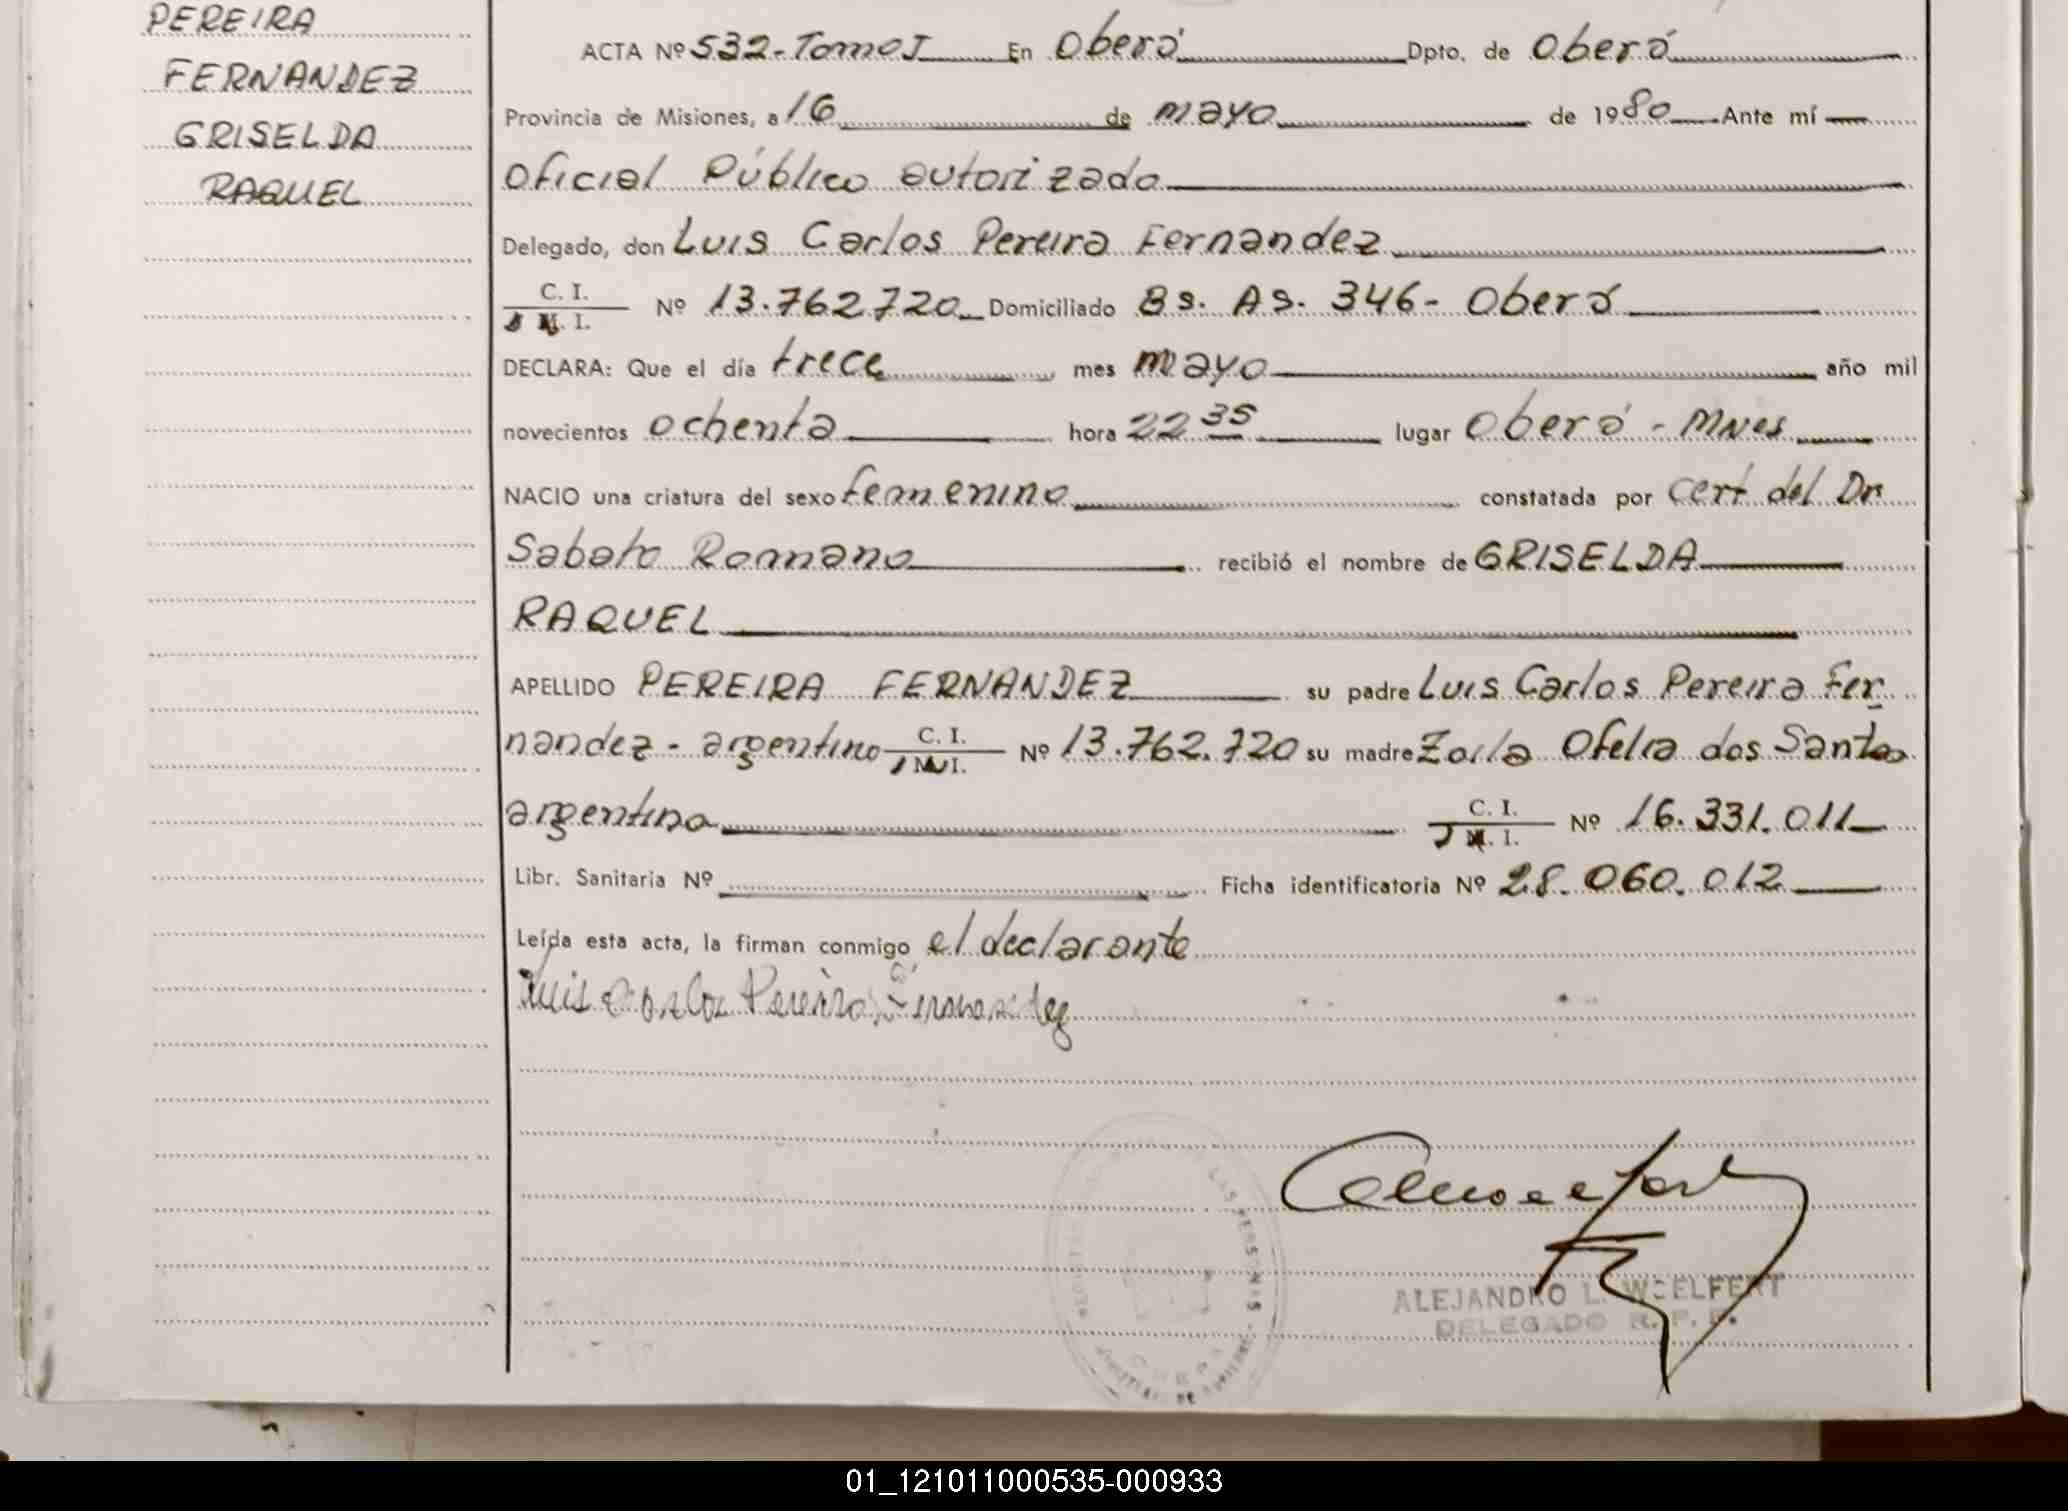 PEREIRA
FERNANDEZ
GRISELDA
RAQUEL
ACTA Nº 532-Tomo I En Oberá Dpto. de Oberá
Provincia de Misiones, a 16 de mayo de 1980 Ante mí
Oficial Público autorizado
Delegado, don Luis Carlos Pereira Fernandez
C. I.
M. I. Nº 13.762.720 Domiciliado Bs. As. 346- Oberá
DECLARA: Que el día trece mes mayo año mil
novecientos ochenta hora 22 35 lugar Oberá - Mnes
NACIO una criatura del sexo femenino constatada por cert del Dr
Sabato Romano recibió el nombre de GRISELDA
RAQUEL
APELLIDO PEREIRA FERNANDEZ su padre Luis Carlos Pereira Fer
nandez - argentino C. I.
M. I. Nº 13.762.720 su madre Zoila Ofelia dos Santos
argentina C. I.
M. I. Nº 16.331.011
Libr. Sanitaria Nº Ficha identificatoria Nº 28.060.012
Leída esta acta, la firman conmigo el declarante
Luis Carlos Pereira Fernandez
ALEJANDRO L. WOELFERT
DELEGADO R. P. P.
01_121011000535-000933